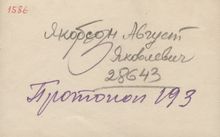 158б
Якобсон Август
Яковлевич
28643
Протокол 193